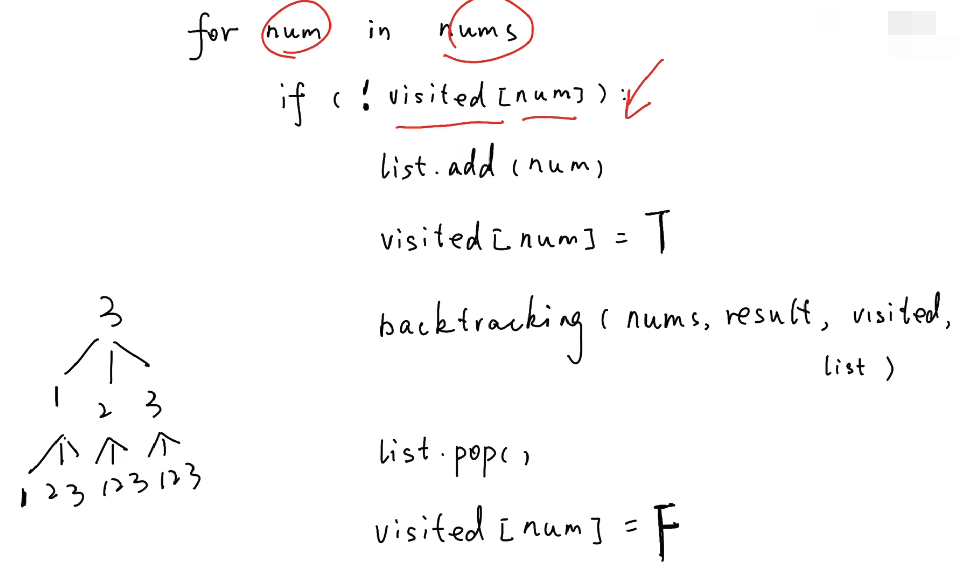 for num in nums
if ( ! visited [num] ) :
list.add (num)
visited [num] = T
backtracking ( nums, result, visited,
list )
list.pop()
visited [num] = F
3
1 2 3
1 2 3 1 2 3 1 2 3